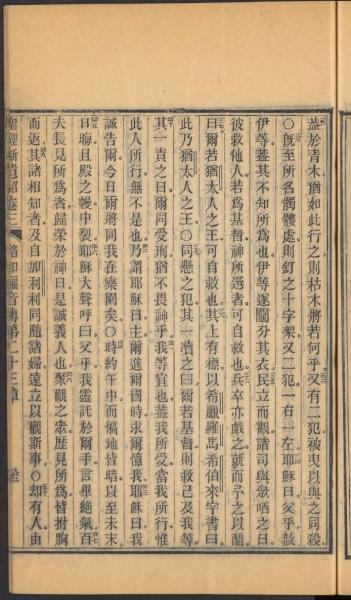 蓋於青木猶如此行之則枯木將若何乎又有二犯被曳以與之同殺
○旣至所名髑髏處則釘之十字架又二犯一右一左耶穌曰父乎赦
伊等蓋其不知所為也伊等遂鬮分其衣民立而觀諸司與衆哂之曰
彼救他人若為基督神所選者可自救也兵卒亦戲之就而予之以醋
曰爾若猶太人之王可自救也其上有標以希臘羅馬希伯來字書曰
此乃猶太人之王○同懸之犯其一瀆之曰爾若基督則救己及我等
其一責之曰爾同受刑猶不畏神乎我等宜也蓋我所受當我所行惟
此人所行無不是也乃謂耶穌曰主爾進爾國時求爾憶我耶穌曰我
誠告爾今日爾將同我在樂園矣○時約午中而徧地皆暗以至未末
日晦且殿之幔中裂耶穌大聲呼曰父乎我靈託於爾手言畢絕氣百
夫長見所為者歸榮於神曰是誠義人也聚觀之衆歷見所為皆拊胸
而返其諸相知者及自加利利同隨諸婦遠立以觀斯事○却有人由
聖經新遺詔卷三 路加福音傳第二十三章